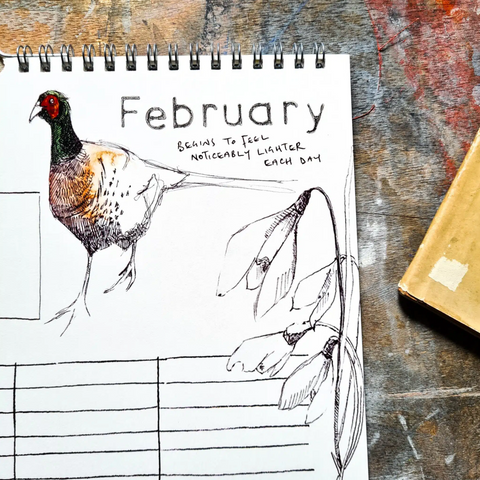 February
BEGINS TO FEEL
NOTICEABLY LIGHTER
EACH DAY